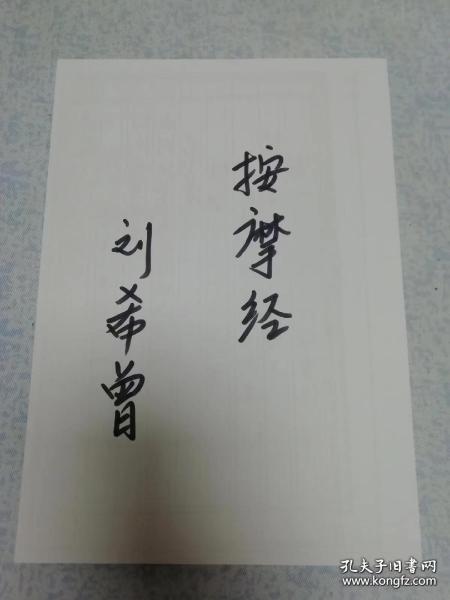 按摩经
刘希曾
孔夫子旧书网
www.kongfz.com